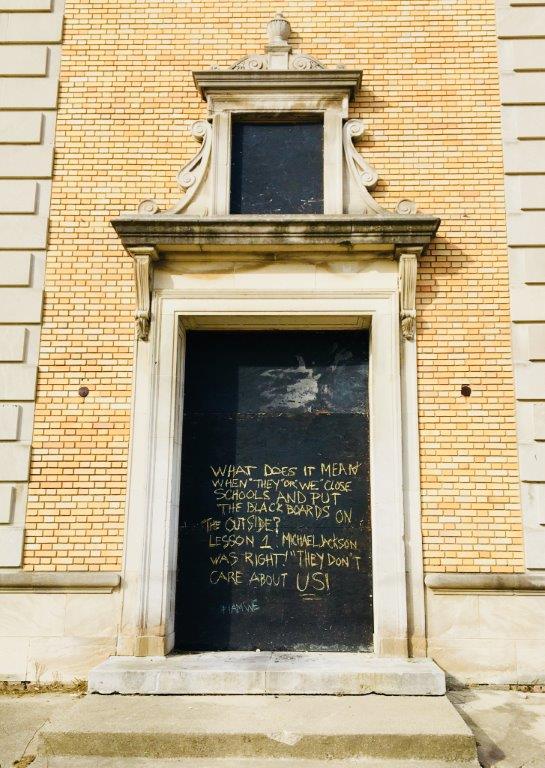 WHAT DOES IT MEAN
WHEN "THEY" OR "WE" CLOSE
SCHOOLS AND PUT
THE BLACKBOARDS ON
THE OUTSIDE?
LESSON 1: MICHAEL JACKSON
WAS RIGHT! "THEY DON'T
CARE ABOUT US!
#IAMWE